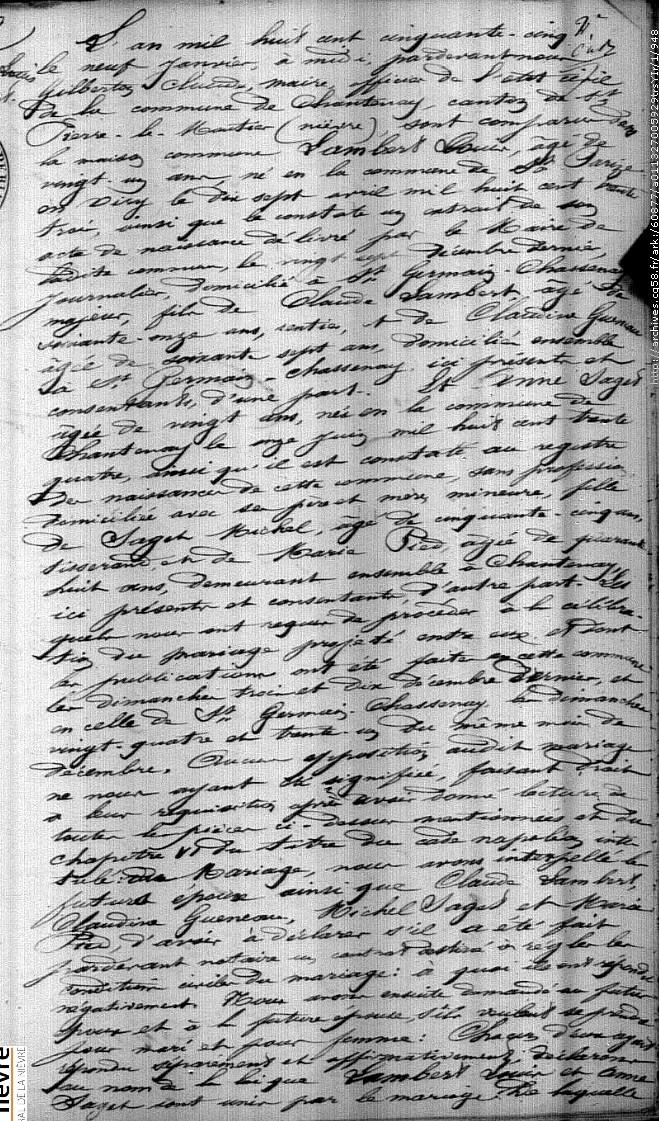 L'an mil huit cent cinquante-cinq
le neuf Janvier, à midi, pardevant nous
Gilbertas Claude, maire, officier de l'état civil
De la commune de Chantenay canton de St
Pierre-le-Moutier (nièvre) sont comparus dans
la maison commune Lambert Louis, âgé de
vingt-un ans, né en la commune de St Parize
en Viry le dix sept avril mil huit cent trente
trois, ainsi que le constate un extrait de son
acte de naissance délivré par le Maire de
ladite commune, le vingt sept décembre dernier,
Journalier, domicilié à St Germain-Chassenay
majeur, fils de Claude Lambert, âgé de
soixante-onze ans, rentier, et de Claudine Gueneau
âgée de soixante sept ans, domiciliés ensemble
à St Germain-Chassenay, ici présents et
consentants, d'une part. Et Anne Saget
âgée de vingt ans, née en la commune de
Chantenay le onze juin mil huit cent trente
quatre, ainsi qu'il est constaté au registre
De naissance de cette commune, sans profession
domiciliée avec ses père et mère, mineure, fille
de Saget Michel, âgé de cinquante-cinq ans,
tisserand, et de Marie Pied, âgée de quarante
huit ans, demeurant ensemble à Chantenay,
ici présents et consentants, d'autre part. Les
quels nous ont requis de procéder à la célébra-
tion du mariage projeté entre eux et dont
les publications ont été faites en cette commune
les dimanches trois et dix décembre dernier, et
en celle de St Germain-Chassenay les dimanches
vingt-quatre et trente un du même mois de
décembre. Aucune opposition audit mariage
ne nous ayant été signifiée, faisant droit
à leur réquisition après avoir donné lecture de
toutes les pièces ci-dessus mentionnées et du
chapitre VI du titre du code napoléon inti-
tulé du Mariage, nous avons interpellé les
futurs époux ainsi que Claude Lambert,
Claudine Gueneau, Michel Saget et Marie
Pied d'avoir à déclarer s'il a été fait
pardevant notaire un contrat destiné à régler les
conditions civiles du mariage: à quoi ils ont répondu
négativement. Nous avons ensuite demandé au futur
époux et à la future épouse s'ils veulent se prendre
pour mari et pour femme: Chacun d'eux ayant
répondu séparément et affirmativement, déclarons
au nom de la loi que Lambert Louis et Anne
Saget sont unis par le mariage. De laquelle
http://archives.cg58.fr/ark:/60877/a011327005929trsY1r/1/948
nièvre
RAL DE LA NIÈVRE